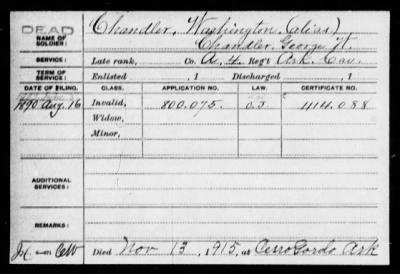 DEAD
NAME OF SOLDIER: Chandler, Washington (alias)
Chandler, George W.
SERVICE: Late rank, Co. A, 4 Reg't Ark. Cav.
TERM OF SERVICE: Enlisted , 1 Discharged , 1
DATE OF FILING. CLASS. APPLICATION NO. LAW. CERTIFICATE NO.
1890 Aug. 16 Invalid, 800.075. 414.088
Widow,
Minor,
ADDITIONAL SERVICES:
REMARKS:
Died Nov 13, 1915, at Cerro Gordo Ark